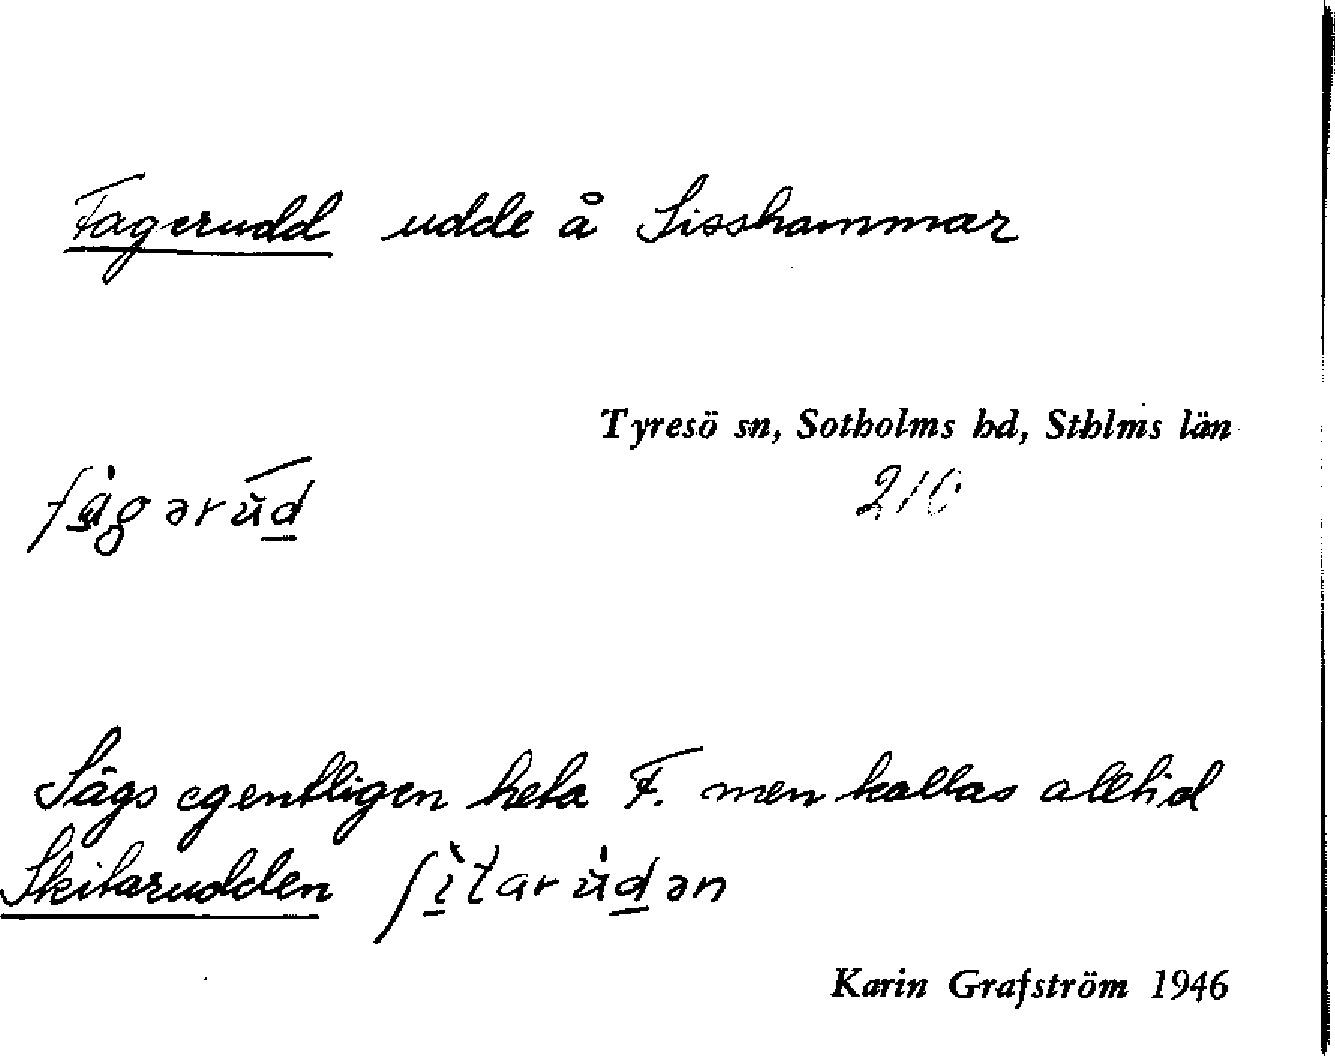 Fagerudd udde å Sisshammar
Tyresö sn, Sotholms hd, Sthlms län
fàgərùd
210
Sägs egentligen heta F. men kallas alltid
Skitarudden ʃìtarùdən
Karin Grafström 1946